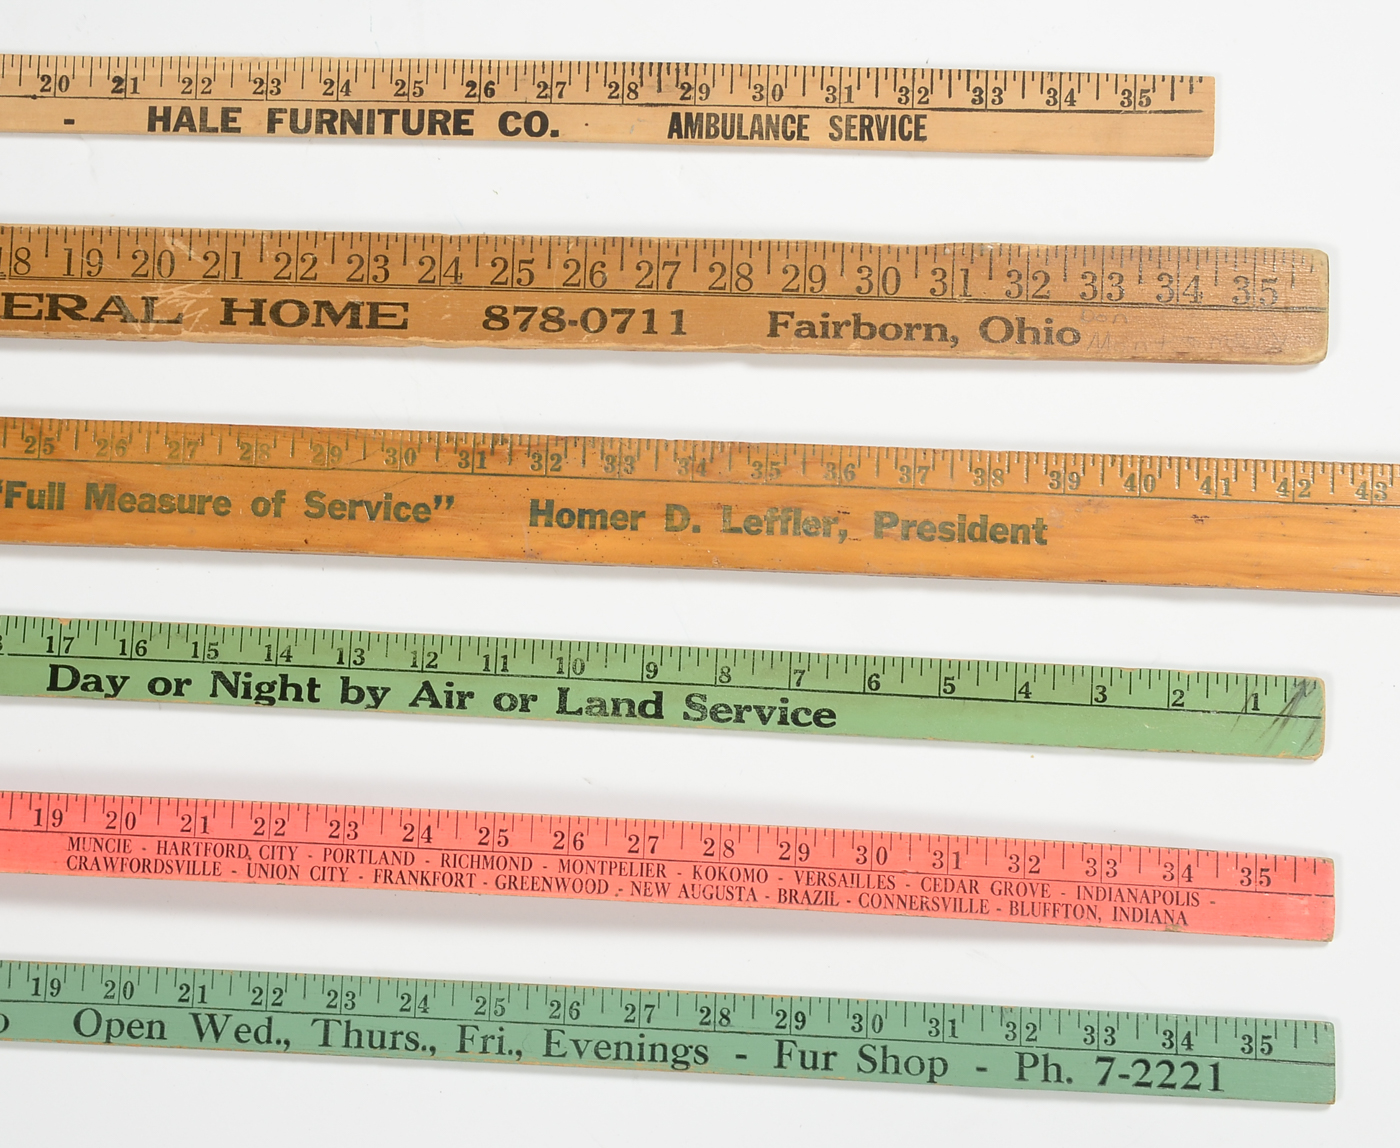 20 21 22 23 24 25 26 27 28 29 30 31 32 33 34 35
- HALE FURNITURE CO. AMBULANCE SERVICE
18 19 20 21 22 23 24 25 26 27 28 29 30 31 32 33 34 35
ERAL HOME 878-0711 Fairborn, Ohio
25 26 27 28 29 30 31 32 33 34 35 36 37 38 39 40 41 42 43
"Full Measure of Service" Homer D. Leffler, President
17 16 15 14 13 12 11 10 9 8 7 6 5 4 3 2 1
Day or Night by Air or Land Service
19 20 21 22 23 24 25 26 27 28 29 30 31 32 33 34 35
MUNCIE - HARTFORD CITY - PORTLAND - RICHMOND - MONTPELIER - KOKOMO - VERSAILLES - CEDAR GROVE - INDIANAPOLIS -
CRAWFORDSVILLE - UNION CITY - FRANKFORT - GREENWOOD - NEW AUGUSTA - BRAZIL - CONNERSVILLE - BLUFFTON, INDIANA
19 20 21 22 23 24 25 26 27 28 29 30 31 32 33 34 35
Open Wed., Thurs., Fri., Evenings - Fur Shop - Ph. 7-2221